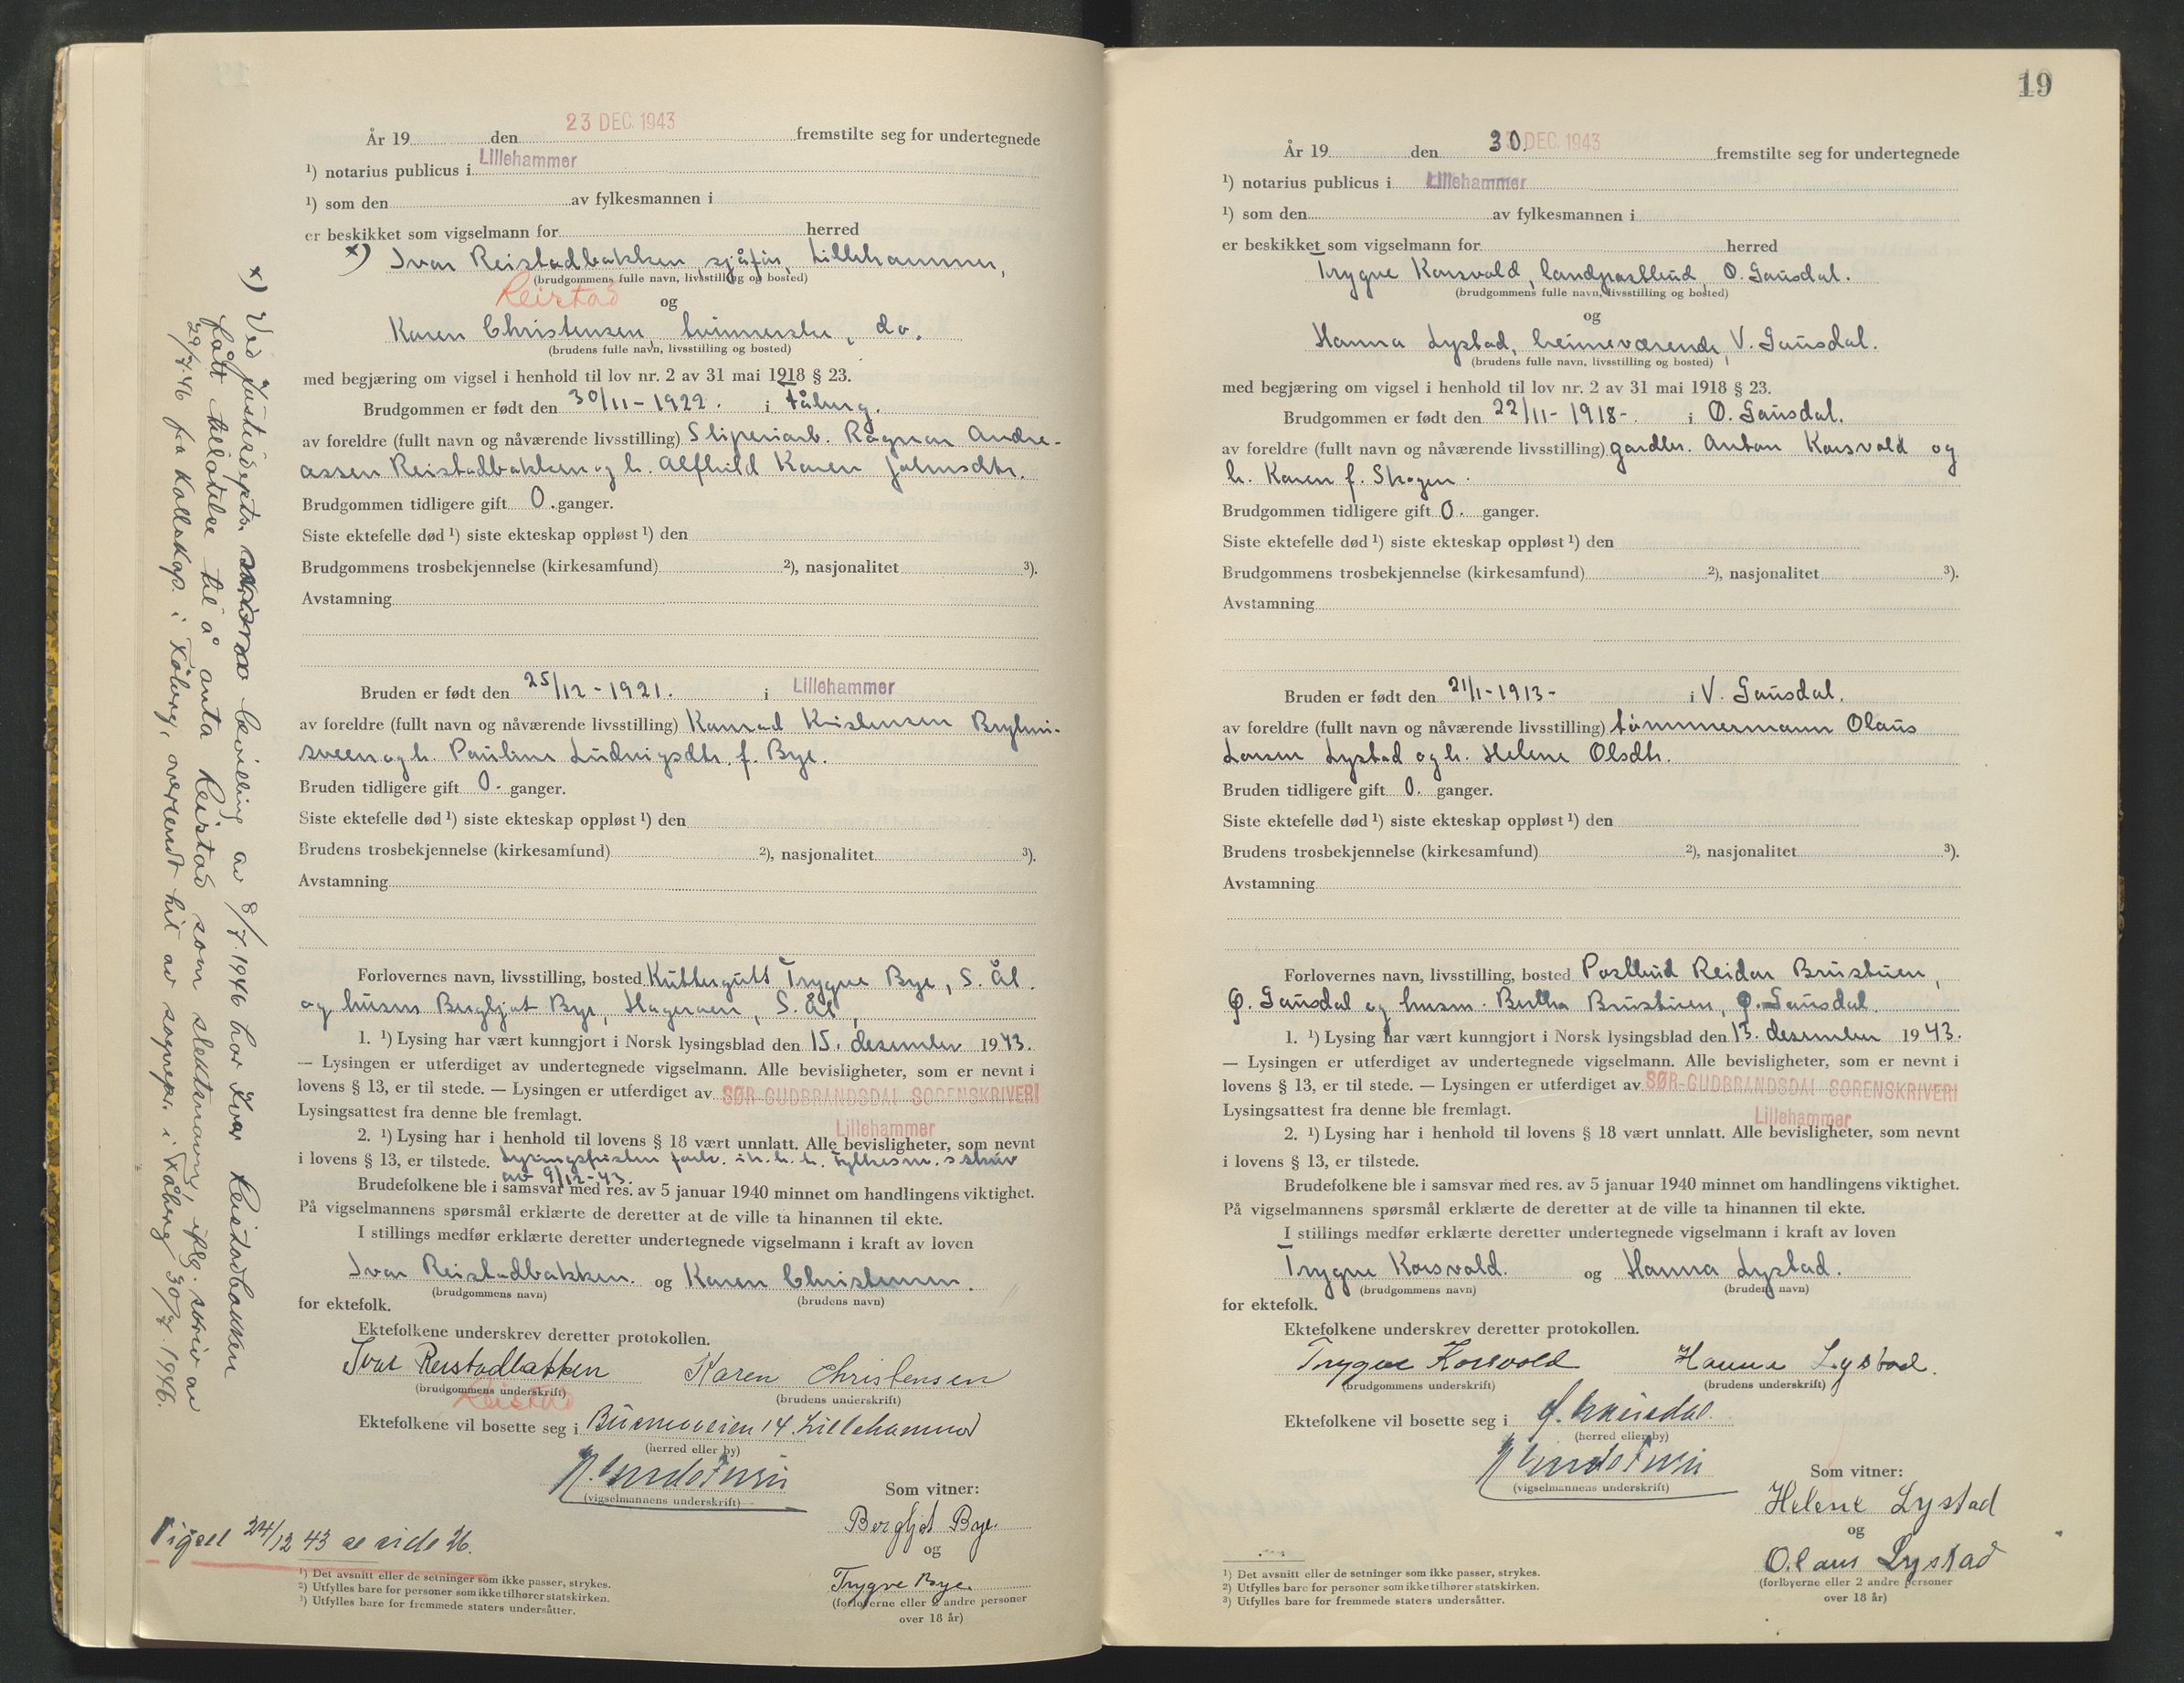 23 DEC. 1943
År 19 den fremstilte seg for undertegnede
¹) notarius publicus i Lillehammer
¹) som den av fylkesmannen i
er beskikket som vigselmann for herred
x) Ivar Reistadbakken, sjåfør, Lillehammer,
(brudgommens fulle navn, livsstilling og bosted)
Reistad
og
Karen Christensen, tvinnerske, do.
(brudens fulle navn, livsstilling og bosted)
med begjæring om vigsel i henhold til lov nr. 2 av 31 mai 1918 § 23.
Brudgommen er født den 30/11-1922. i Fåberg.
av foreldre (fullt navn og nåværende livsstilling) Sliperiarb. Ragnar Andre-
assen Reistadbakken og h. Alfhild Karen Johnsdtr.
Brudgommen tidligere gift 0. ganger.
Siste ektefelle død ¹) siste ekteskap oppløst ¹) den
Brudgommens trosbekjennelse (kirkesamfund) ²), nasjonalitet ³).
Avstamning
Bruden er født den 25/12-1921. i Lillehammer
av foreldre (fullt navn og nåværende livsstilling) Konrad Kristensen
sveen og h. Pauline Ludvigsdtr. f. Bye.
Bruden tidligere gift 0. ganger.
Siste ektefelle død ¹) siste ekteskap oppløst ¹) den
Brudens trosbekjennelse (kirkesamfund) ²), nasjonalitet ³).
Avstamning
Forlovernes navn, livsstilling, bosted Kuttergutt Trygve Bye, S. Ål.
og husm Bergljot Bye, Hageroen, S. Ål,
1. ¹) Lysing har vært kunngjort i Norsk lysingsblad den 15. desember 1943.
— Lysingen er utferdiget av undertegnede vigselmann. Alle bevisligheter, som er nevnt i
lovens § 13, er til stede. — Lysingen er utferdiget av SØR-GUDBRANDSDAL SORENSKRIVERI
Lysingsattest fra denne ble fremlagt.
Lillehammer
2. ¹) Lysing har i henhold til lovens § 18 vært unnlatt. Alle bevisligheter, som nevnt
i lovens § 13, er tilstede. Lysingsfristen fork. i h. h. t. Fylkesm.s skriv
av 9/12-43.
Brudefolkene ble i samsvar med res. av 5 januar 1940 minnet om handlingens viktighet.
På vigselmannens spørsmål erklærte de deretter at de ville ta hinannen til ekte.
I stillings medfør erklærte deretter undertegnede vigselmann i kraft av loven
Ivar Reistadbakken. og Karen Christensen.
(brudgommens navn) (brudens navn)
for ektefolk.
Ektefolkene underskrev deretter protokollen.
Ivar Reistadbakken Karen Christensen
(brudgommens underskrift) (brudens underskrift)
Reistad
Ektefolkene vil bosette seg i Buemoveien 14. Lillehammer
(herred eller by)
(vigselmannens underskrift)
Som vitner:
Bergljot Bye.
og
Trygve Bye.
(forloverne eller 2 andre personer
over 18 år)
Vigsel 24/12 43 se side 26.
¹) Det avsnitt eller de setninger som ikke passer, strykes.
²) Utfylles bare for personer som ikke tilhører statskirken.
³) Utfylles bare for fremmede staters undersåtter.
x) Ved Justisdepts. bevilling av 8/7. 1946 har Ivar Reistadbakken
fått tillatelse til å anta Reistad som slektsnavn, iflg. skriv av
29/7 46 fra Folkeregisteret i Fåberg, oversendt hit av sognepr. i Fåberg 30/7. 1946.
19
30. DEC. 1943
År 19 den fremstilte seg for undertegnede
¹) notarius publicus i Lillehammer
¹) som den av fylkesmannen i
er beskikket som vigselmann for herred
Trygve Korsvold, landpostbud, Ø. Gausdal.
(brudgommens fulle navn, livsstilling og bosted)
og
Hanna Lystad, heimeværende, V. Gausdal.
(brudens fulle navn, livsstilling og bosted)
med begjæring om vigsel i henhold til lov nr. 2 av 31 mai 1918 § 23.
Brudgommen er født den 22/11-1918- i Ø. Gausdal.
av foreldre (fullt navn og nåværende livsstilling) gardbr. Anton Korsvold og
h. Karen f. Skogen.
Brudgommen tidligere gift 0. ganger.
Siste ektefelle død ¹) siste ekteskap oppløst ¹) den
Brudgommens trosbekjennelse (kirkesamfund) ²), nasjonalitet ³).
Avstamning
Bruden er født den 21/1-1913- i V. Gausdal.
av foreldre (fullt navn og nåværende livsstilling) tømmermann Olaus
Larsen Lystad og h. Helene Olsdtr.
Bruden tidligere gift 0. ganger.
Siste ektefelle død ¹) siste ekteskap oppløst ¹) den
Brudens trosbekjennelse (kirkesamfund) ²), nasjonalitet ³).
Avstamning
Forlovernes navn, livsstilling, bosted Postbud Reidar Brustuen,
Ø. Gausdal og husm. Bertha Brustuen, Ø. Gausdal.
1. ¹) Lysing har vært kunngjort i Norsk lysingsblad den 13. desember 1943.
— Lysingen er utferdiget av undertegnede vigselmann. Alle bevisligheter, som er nevnt i
lovens § 13, er til stede. — Lysingen er utferdiget av SØR-GUDBRANDSDAL SORENSKRIVERI
Lysingsattest fra denne ble fremlagt.
Lillehammer
2. ¹) Lysing har i henhold til lovens § 18 vært unnlatt. Alle bevisligheter, som nevnt
i lovens § 13, er tilstede.
Brudefolkene ble i samsvar med res. av 5 januar 1940 minnet om handlingens viktighet.
På vigselmannens spørsmål erklærte de deretter at de ville ta hinannen til ekte.
I stillings medfør erklærte deretter undertegnede vigselmann i kraft av loven
Trygve Korsvold. og Hanna Lystad.
(brudgommens navn) (brudens navn)
for ektefolk.
Ektefolkene underskrev deretter protokollen.
Trygve Korsvold Hanna Lystad.
(brudgommens underskrift) (brudens underskrift)
Ektefolkene vil bosette seg i Ø. Gausdal.
(herred eller by)
(vigselmannens underskrift)
Som vitner:
Helene Lystad
og
Olaus Lystad
(forloverne eller 2 andre personer
over 18 år)
¹) Det avsnitt eller de setninger som ikke passer, strykes.
²) Utfylles bare for personer som ikke tilhører statskirken.
³) Utfylles bare for fremmede staters undersåtter.